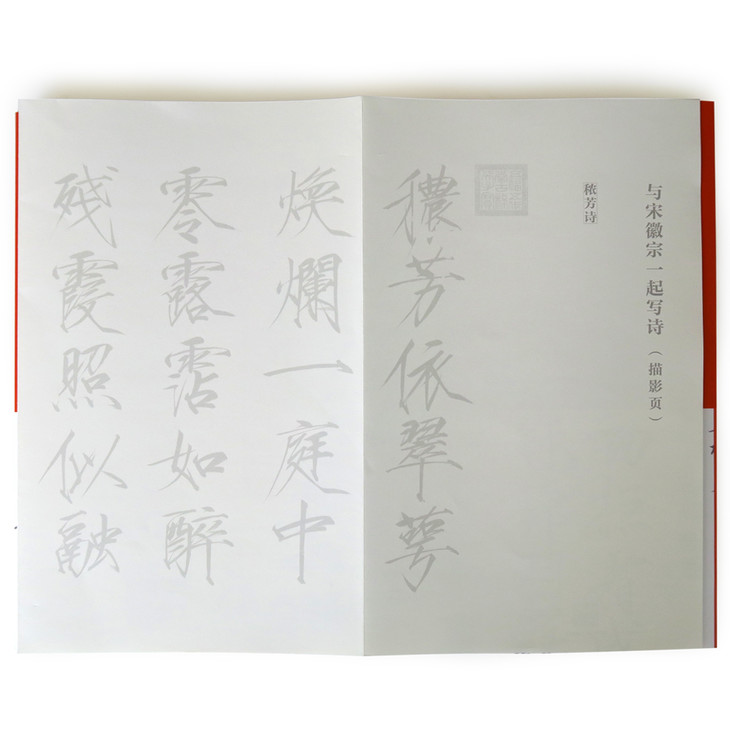 与宋徽宗一起写诗（描影页）
秾芳诗
穠芳依翠萼
煥爛一庭中
零露霑如醉
残霞照似融